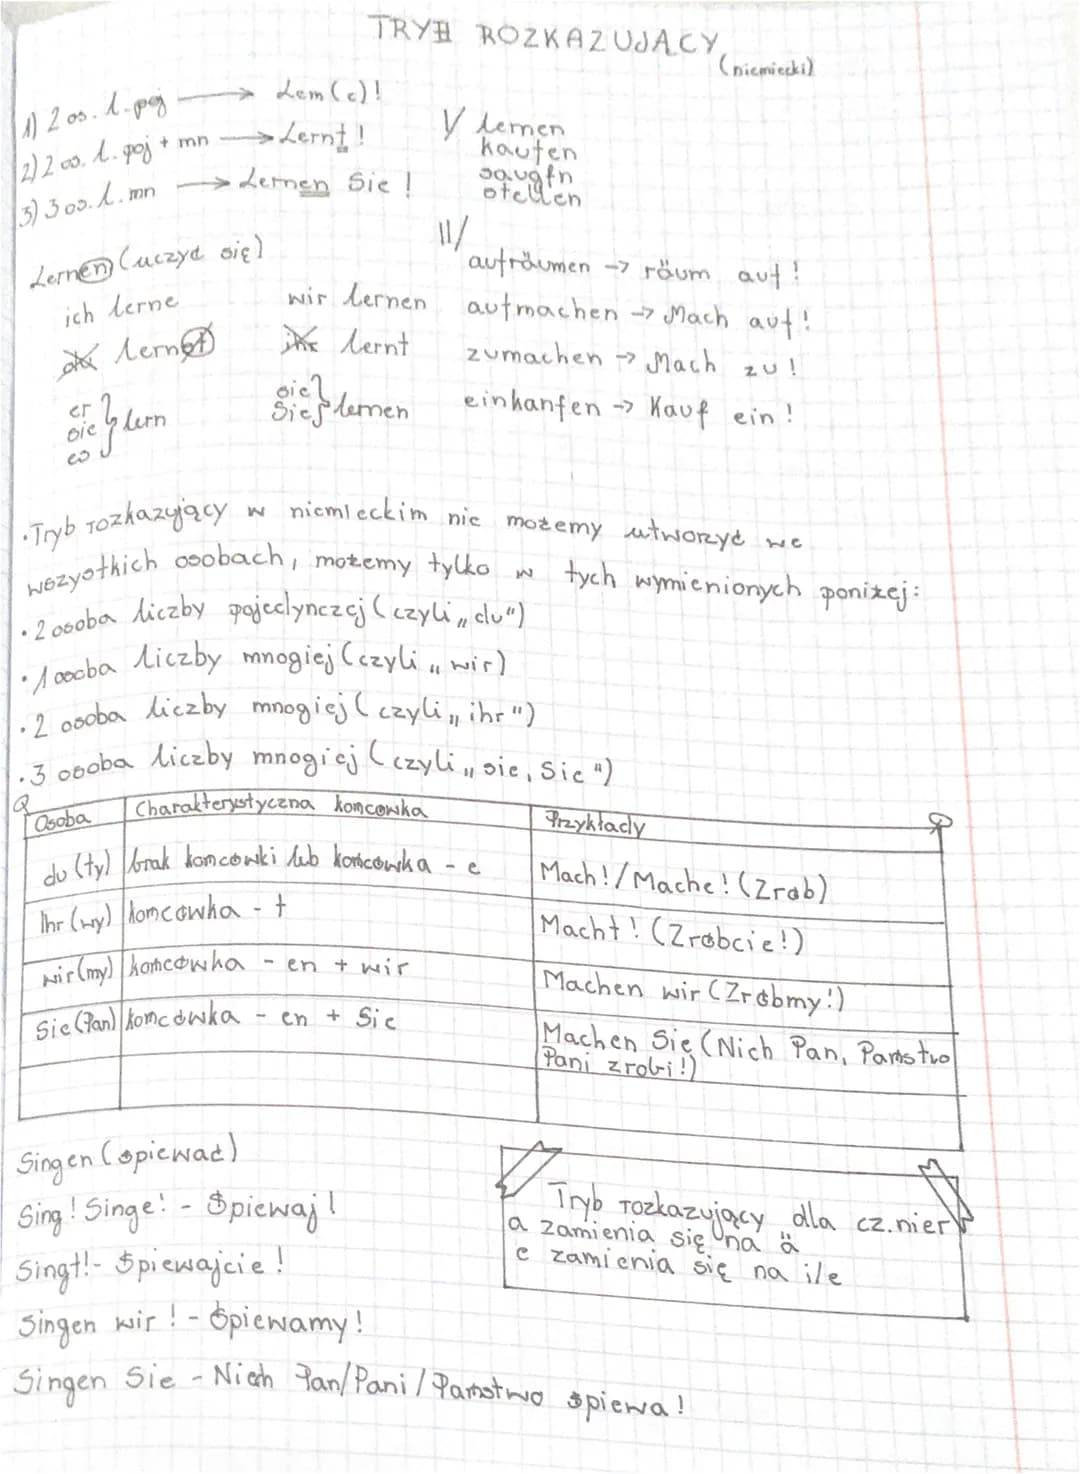 TRYB ROZKAZUJĄCY
(niemiecki)
1) 2 os. l. poj → Lern(e)!
2) 2 os. l. poj + mn → Lernt!
3) 3 os. l. mn → Lernen Sie!
I/ lernen
kaufen
saugen
stellen
Lernen (uczyć się)
ich lerne
du lernst
er
sie } lern
es
wir lernen
ihr lernt
sie
Sie } lernen
II/
aufräumen → räum auf!
aufmachen → Mach auf!
zumachen → Mach zu!
einkanfen → Kauf ein!
• Tryb rozkazujący w niemieckim nie możemy utworzyć we
wszystkich osobach, możemy tylko w tych wymienionych poniżej:
• 2 osoba liczby pojedynczej (czyli „du")
• 1 osoba liczby mnogiej (czyli „wir)
• 2 osoba liczby mnogiej (czyli „ihr")
• 3 osoba liczby mnogiej (czyli „sie, Sie")
Osoba Charakterystyczna końcówka Przykłady
du (ty) brak końcówki lub końcówka - e Mach!/Mache! (Zrób)
Ihr (wy) końcówka - t Macht! (Zróbcie!)
wir (my) końcówka - en + wir Machen wir (Zróbmy!)
Sie (Pan) końcówka - en + Sie Machen Sie (Nich Pan, Państwo
Pani zrobi!)
Singen (śpiewać)
Sing! Singe! - Śpiewaj!
Singt! - Śpiewajcie!
Singen wir! - Śpiewamy!
Singen Sie - Niech Pan/Pani/Państwo śpiewa!
Tryb rozkazujący dla cz.nier
a zamienia się na ä
e zamienia się na i/e